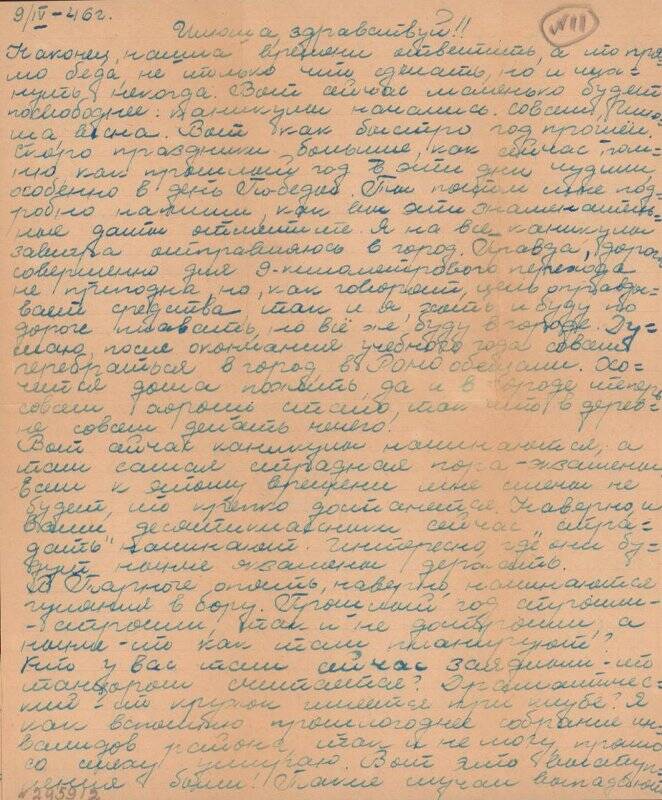 9/IV-46г.
№11
Шюма, здравствуй!!
Наконец, нашла времени ответить, а то пря-
мо беда, не только что сделать, но и чих-
нуть некогда. Вот сейчас маленько будет
посвободнее: каникулы начались. Совсем,
ма, весна. Вот как быстро год прошёл.
Скоро праздники большие, как сейчас пом-
ню как прошлый год в эти дни чудили
особенно в день Победы. Ты потом мне под
робно напиши, как вы эти знаменатель-
ные даты отметите. Я на все каникулы
завтра отправляюсь в город. Правда, дорога
совершенно для 9-километрового перехода
не пригодна, но, как говорят, цель оправды-
вает средства, так и я, хоть и буду по
дороге плавать, но всё же, буду в городе. Ду-
маю, после окончания учебного года совсем
перебраться в город, в РОНО обещали. Хо-
чется дома пожить, да и в городе теперь
совсем хорошо стало, так что в дерев-
не совсем делать нечего.
Вот сейчас каникулы начинаются, а
там самая страдная пора - экзамены
если к этому времени мне смены не
будет, то крепко достанется. Наверно, и
Ваши десятиклассники сейчас "стра-
дать" начинают. Интересно, где они бу-
дут ныне экзамены держать.
В Тарноге опять, наверно, начинаются
гуляния в бору. Прошлый год строили-
-строили, так и не достроили, а
ныне-то как там планируют?
Кто у вас там сейчас заядлым-то
танцором считается? Драматичес-
кий-то кружок имеется при клубе? Я
как вспомню прошлогоднее собрание ин-
валидов района, так и не могу, прямо
со смеху умираю. Вот это выступ-
ления были! Такие случаи
№2959/2